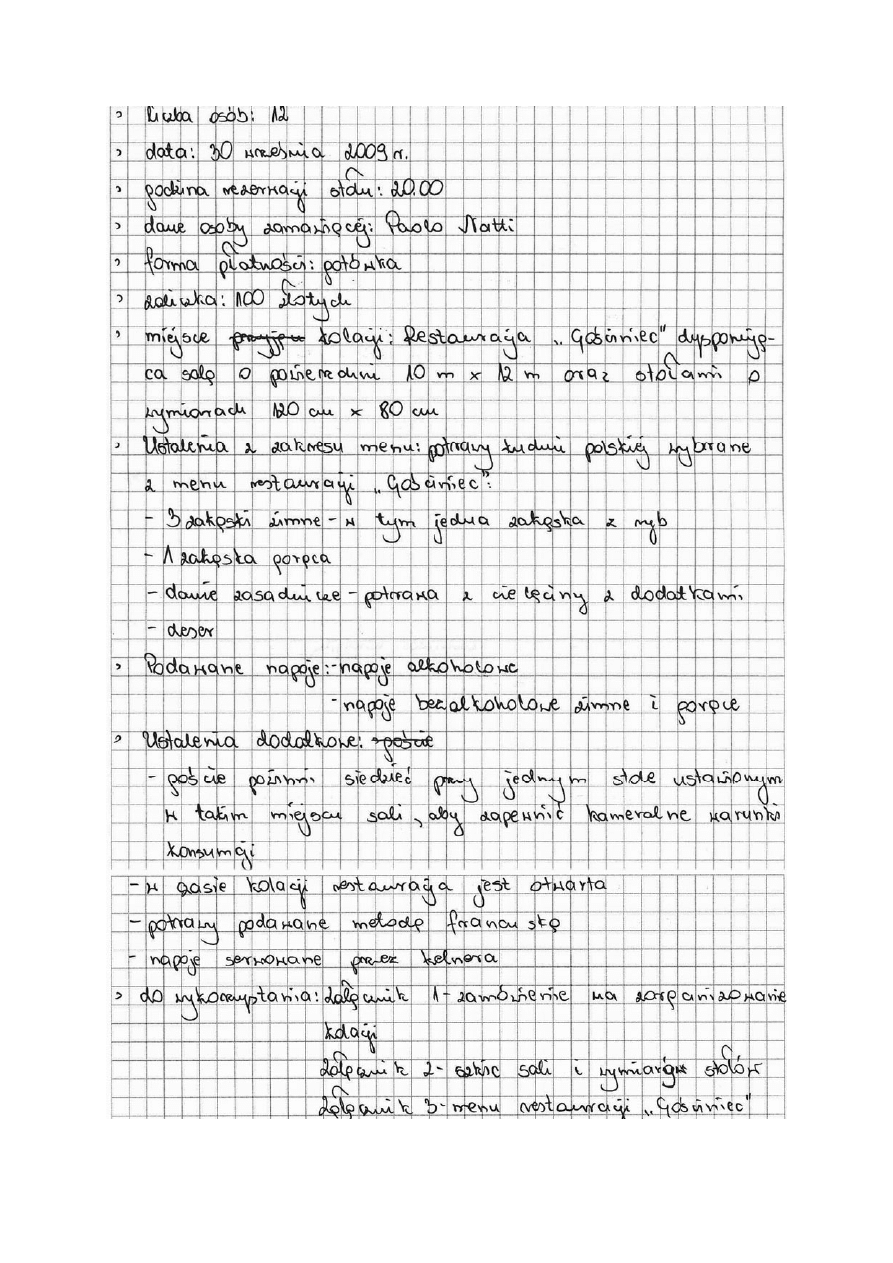 > liczba osób: 12
> data: 30 września 2009 r.
> godzina rezerwacji stołu: 20.00
> dane osoby zamawiącej: Paolo Natti
> forma płatności: gotówka
> zaliczka: 100 złotych
> miejsce przyjęc kolacji: Restauracja „Gościniec” dysponują-
ca salą o powierzchni 10 m x 12 m oraz stołami o
wymiarach 120 cm x 80 cm
> Ustalenia z zakresu menu: potrawy kuchni polskiej wybrane
z menu restauracji „Gościniec”:
- 3 zakąski zimne - w tym jedna zakąska z ryb
- 1 zakąska gorąca
- danie zasadnicze - potrawa z cielęciny z dodatkami
- deser
> Podawane napoje: - napoje alkoholowe
- napoje bezalkoholowe zimne i gorące
> Ustalenia dodatkowe: - goście
- goście powinni siedzieć przy jednym stole ustawionym
w takim miejscu sali, aby zapewnić kameralne warunki
konsumcji
- w czasie kolacji restauracja jest otwarta
- potrawy podawane metodą francuską
- napoje serwowane przez kelnera
> do wykorzyptania: Załącznik 1 - zamówienie na zorganizowanie
kolacji
Załącznik 2 - szkic sali i wymiarów stołów
Załącznik 3 - menu restauracji „Gościniec”